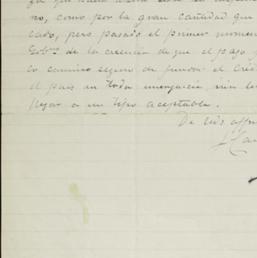 no, como por la gran cantidad que
cado, pero pasado el primer momen
Gob.no de la creencia de que el pago
lo camino seguro de fundar el Créd
el país en toda emergencia, sin
llegar a un tipo aceptable.
De Vds affm